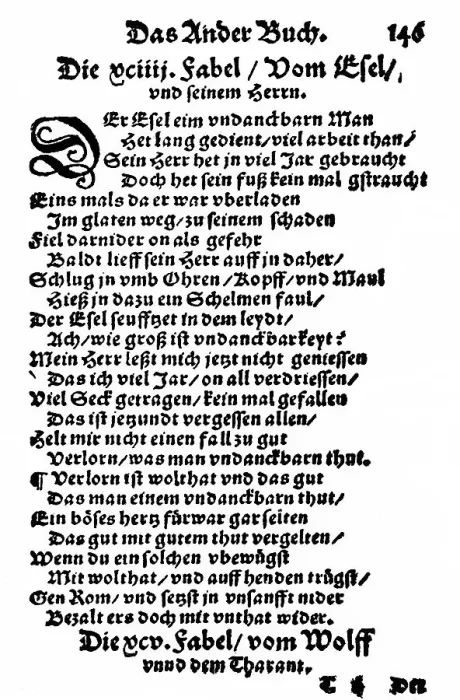 Das Ander Buch. 146
Die xciiij. Fabel / Vom Esel /
vnd seinem Herrn.
DEr Esel eim vndanckbarn Man
Het lang gedient / viel arbeit than /
Sein Herr het jn viel Jar gebraucht
Doch het sein fuß kein mal gstraucht
Eins mals da er war vberladen
Im glaten weg / zu seinem schaden
Fiel darnider on als gefehr
Baldt lieff sein Herr auff jn daher /
Schlug jn vmb Ohren / Kopff / vnd Maul
Hieß jn dazu ein Schelmen faul /
Der Esel seufftzet in dem leydt /
Ach / wie groß ist vndanckbarkeyt?
Mein Herr leßt mich jetzt nicht geniessen
Das ich viel Jar / on all verdriessen /
Viel Seck getragen / kein mal gefallen
Das ist jetzundt vergessen allen /
Helt mir nicht einen fall zu gut
Verlorn / was man vndanckbarn thut.
¶ Verlorn ist wolthat vnd das gut
Das man einem vndanckbarn thut /
Ein böses hertz fürwar gar selten
Das gut mit gutem thut vergelten /
Wenn du ein solchen vbewügst
Mit wolthat / vnd auff henden trügst /
Gen Rom / vnd setzst jn vnsanfft nider
Bezalt ers doch mit vnthat wider.
Die xcv. Fabel / vom Wolff
vnnd dem Tharant.
T Der